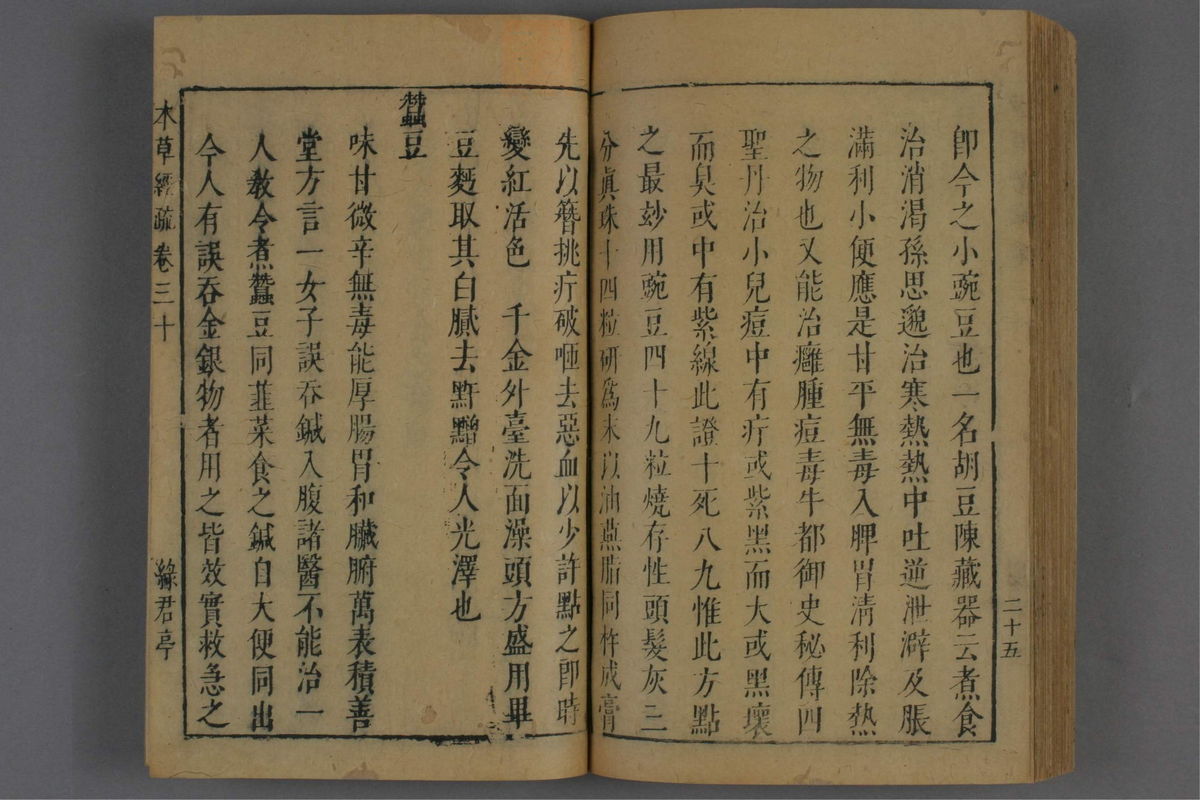 二十五
卽今之小豌豆也一名胡豆陳藏器云煮食
治消渴孫思邈治寒熱熱中吐逆泄澼及脹
滿利小便應是甘平無毒入脾胃淸利除熱
之物也又能治癰腫痘毒牛都御史秘傳四
聖丹治小兒痘中有疔或紫黑而大或黑壞
而臭或中有紫線此證十死八九惟此方點
之最玅用豌豆四十九粒燒存性頭髮灰三
分眞珠十四粒硏爲末以油燕脂同杵成膏
先以簪挑疔破咂去惡血以少許點之卽時
變紅活色　千金外臺洗面澡頭方盛用畢
豆麪取其白膩去䵟䵳令人光澤也
蠶豆
味甘微辛無毒能厚腸胃和臟腑萬表積善
堂方言一女子誤吞鍼入腹諸醫不能治一
人教令煮蠶豆同韭菜食之鍼自大便同出
今人有誤吞金銀物者用之皆效實救急之
本草經疏 卷三十 綠君亭